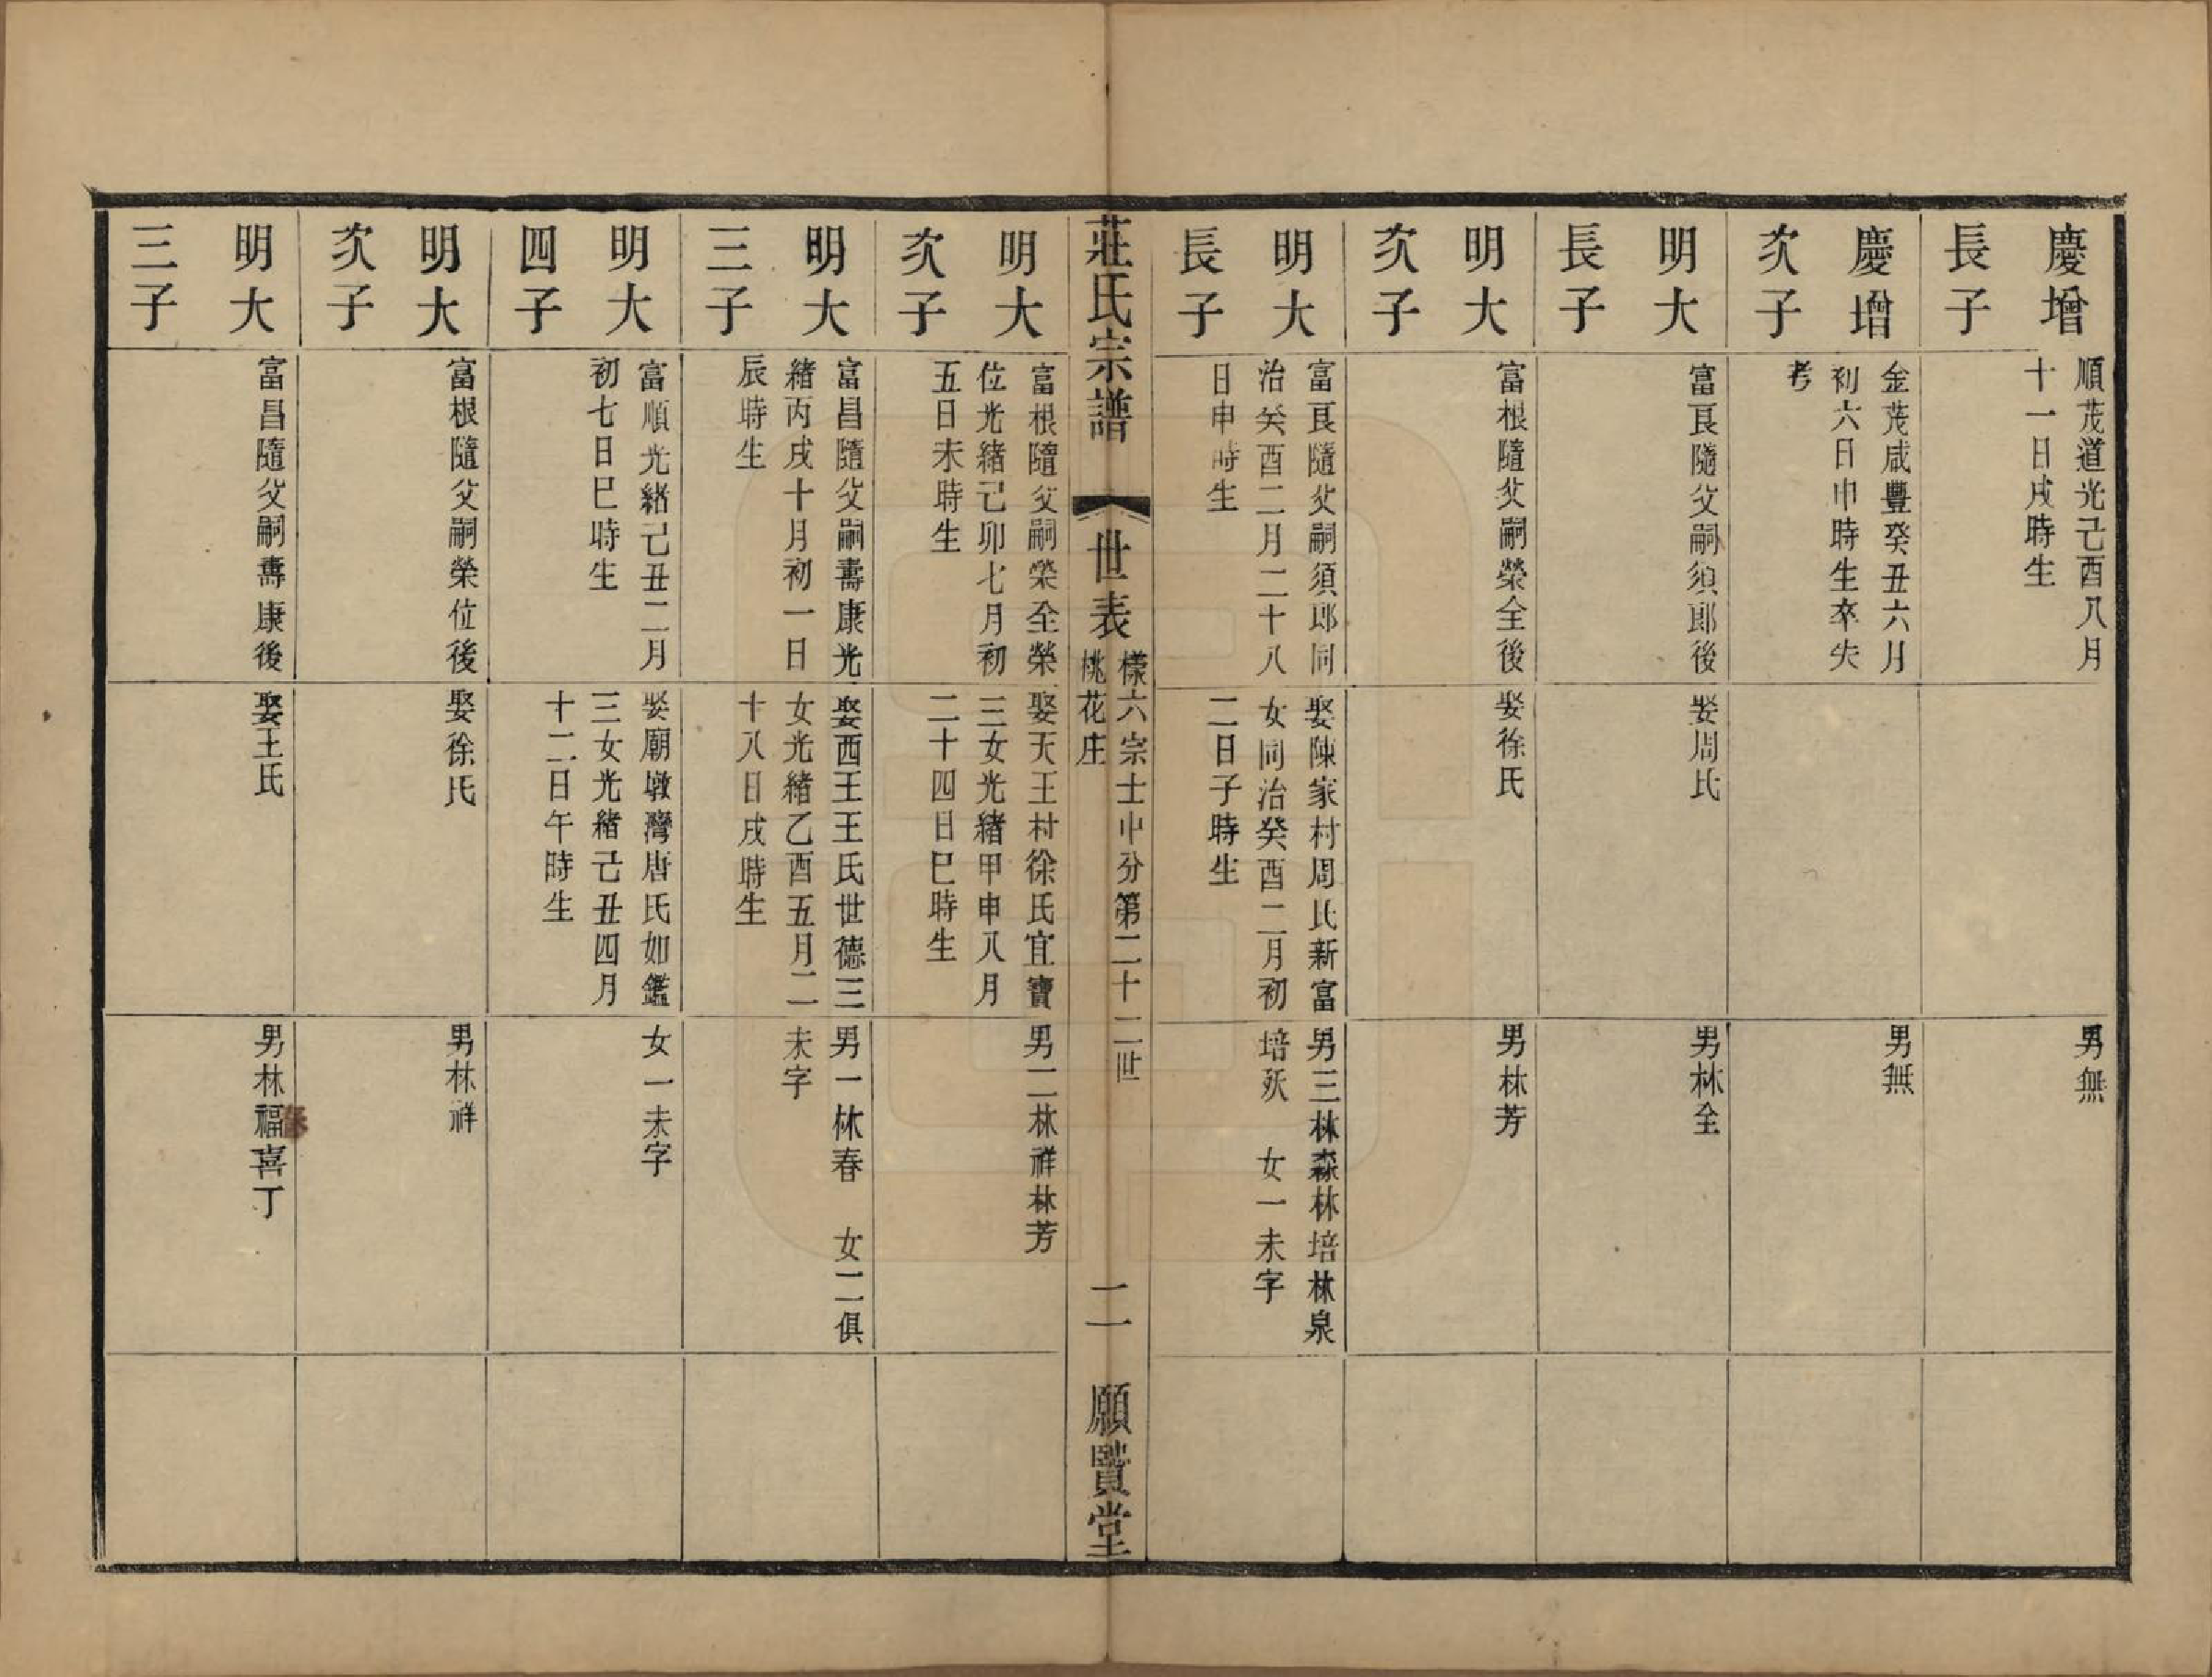 慶增
長子
順茂道光己酉八月
十一日戌時生
男無
慶增
次子
金茂咸豐癸丑六月
初六日申時生卒失
考
男無
明大
長子
富良隨父嗣須郎後
娶周氏
男林全
明大
次子
富根隨父嗣榮全後
娶徐氏
男林芳
明大
長子
富良隨父嗣須郎同
治癸酉二月二十八
日申時生
娶陳家村周氏新富
女同治癸酉二月初
二日子時生
男三林森林培林泉
培殀 女一未字
莊氏宗譜
世表
樣六宗士中分第二十二世
桃花庄
二
願賢堂
明大
次子
富根隨父嗣榮全榮
位光緒己卯七月初
五日未時生
娶天王村徐氏宜寶
三女光緒甲申八月
二十四日巳時生
男二林祥林芳
明大
三子
富昌隨父嗣壽康光
緒丙戌十月初一日
辰時生
娶西王王氏世德三
女光緒乙酉五月二
十八日戌時生
男一林春 女二俱
未字
明大
四子
富順光緒己丑二月
初七日巳時生
娶廟墩灣唐氏如鑑
三女光緒己丑四月
十二日午時生
女一未字
明大
次子
富根隨父嗣榮位後
娶徐氏
男林祥
明大
三子
富昌隨父嗣壽康後
娶王氏
男林福喜丁